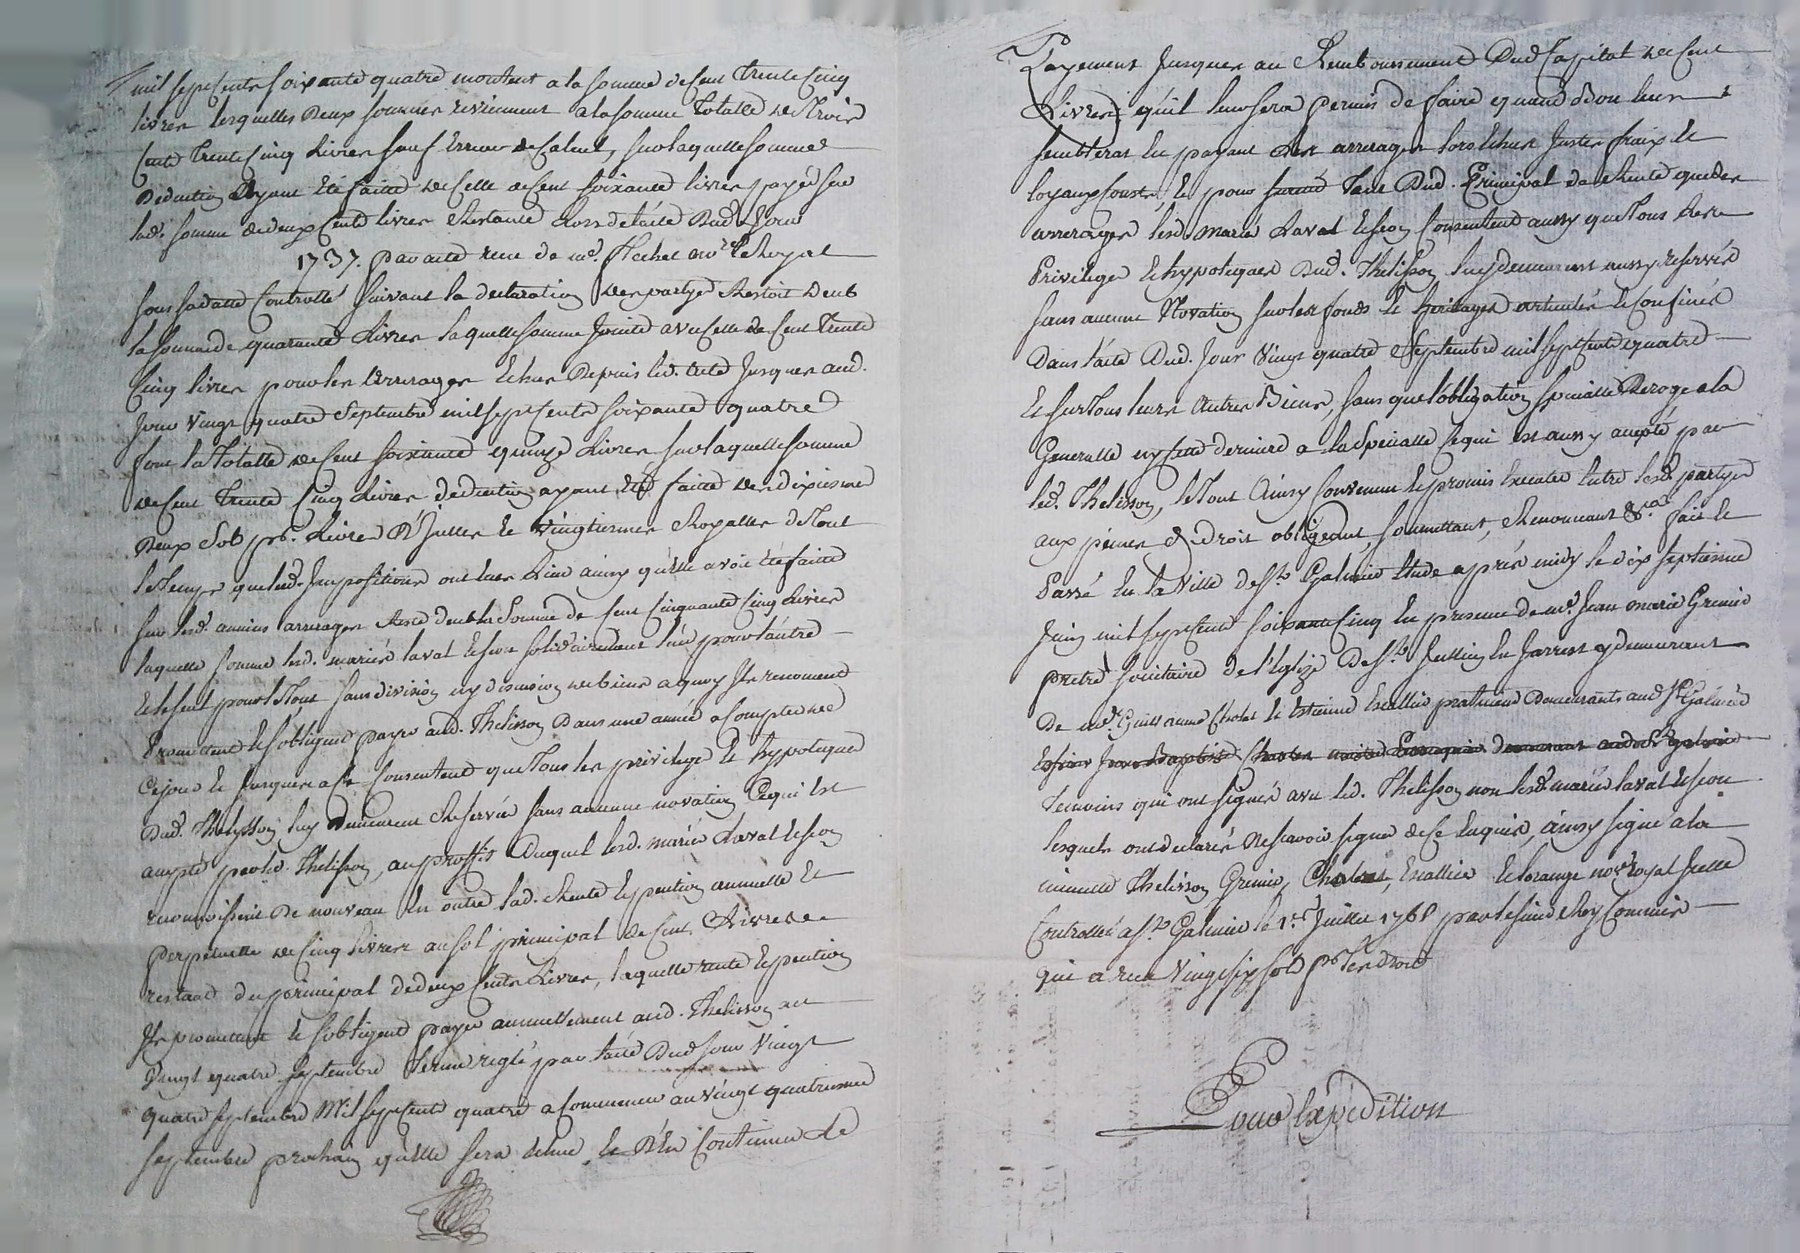 mil sept cents soixante quatre montent a la somme de cent trente cinq
livres lesquelles deux sommes reviennent a la somme totalle de trois
cent trente cinq livres sauf erreur de calcul, sur laquelle somme
deduction ayant été faitte de celle de cent soixante livres payes sur
lad. somme de deux cent livres restante lors de l'acte dud. jour
1737. par acte recu de me. re royal
sous sa datte controllé suivant la declaration des partyes restoit deub
la somme de quarante livres laquelle somme jointe avec celle de cent trente
cinq livres pour les arrerages echus depuis led. acte jusques aud.
jour vingt quatre septembre mil sept cents soixante quatre
font la totalle de cent soixante quinze livres sur laquelle somme
de cent trente cinq livres deduction ayant été faitte des dixiesme
deux sols pr. livre d'yceller et vingtiemes royalles de tout
le temps que lesd. impositions ont eues lieu ainsy qu'elle avoit été faitte
sur lesd. anciens arrerages reste deub la somme de cent cinquante cinq livres
laquelle somme lesd. mariés laval et solidairement l'un pour l'autre
et le seul pour le tout sans division ny discusion de biens a quoy ils renoncent
promettent et s'obligent payer aud. Thelisson dans une année a compter de
ce jour et jusques a ce consentent que tous les privilege et hypoteques
dud. Thelysson luy demeurent reservés sans aucune novation ce qui est
accepté par led. Thelisson, au proffit duquel lesd. mariés Laval
reconnoissent de nouveau en outre lad. rente et pention annuelle et
perpetuelle de cinq livres au sol principal de cent livres
restant du principal de deux cents livres, laquelle rente et pention
ils promettent et s'obligent payer annuellement aud. Thelisson au
vingt quatre septembre terme reglé par l'acte dud. jour vingt
quatre septembre mil sept cents quatre a commencer au vingt quatriesme
septembre prochain qu'elle sera echue et d'en continuer le
Payement jusques au remboursement dud. capital de cent
livres qu'il leur sera permis de faire quand bon leur
semblerat en payant les arrerages lors echus justes fraix et
loyaux couts, et pour tant dud. principal de rente que des
arrerages lesd. mariés Laval consentent aussy que tous les
privilege et hypoteques dud. Thelisson luy demeurent aussy reservés
sans aucune novation sur les fonds et heritages articulés et confinés
dans l'acte dud. jour vingt quatre septembre mil sept cents quatre
et sur tous leurs autres biens, sans que l'obligation specialle deroge a la
generalle ny cette derniere a la specialle ce qui est aussy accepté par
led. Thelisson, le tout ainsy convenu et promis executer entre lesd. partyes
aux peines de droit obligeant, soumettant, renonçant &ca. fait et
passé en la ville de St. Galmier etude après midy le dix septieme
juin mil sept cent soixante cinq en presence de me. Jean Marie Grenier
pretre societaire de l'eglize de St. Jullien en Jarrest y demeurant
de me. Guillaume Cholat et Estienne Escallier praticiens demeurants aud. St. Galmier
temoins qui ont signés avec led. Thelisson non lesd. mariés laval
lesquels ont declarés ne scavoir signer de ce enquis, ainsy signé a la
minutte Thelisson Grenier, Cholat, Escallier et Lorange nore. royal
controllée a St. Galmier le 1er. juillet 1765 par le sieur commis
qui a receu vingt six sols pr. le droit
Pour Expédition